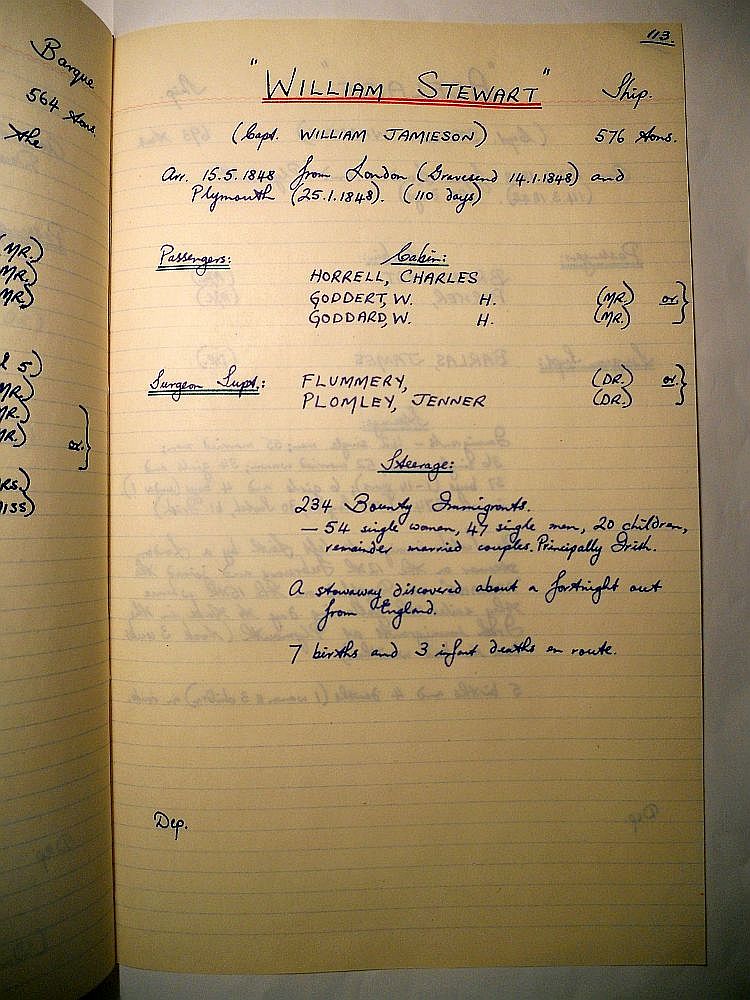 Barque
564 tons.
the
(MR.)
MR.)
MR.)
5)
MR.)
MR.)
MR.)
or.}
RS.)
ISS)
113.
"WILLIAM STEWART" Ship.
(Capt. WILLIAM JAMIESON) 576 tons.
Arr. 15.5.1848 from London (Gravesend 14.1.1848) and
Plymouth (25.1.1848). (110 days)
Passengers: Cabin:
HORRELL, CHARLES
GODDERT, W. H. (MR.) or.}
GODDARD, W. H. (MR.)
Surgeon Supt.: FLUMMERY, (DR.) or.}
PLOMLEY, JENNER (DR.)
Steerage:
234 Bounty Immigrants.
— 54 single women, 47 single men, 20 children,
remainder married couples. Principally Irish.
A stowaway discovered about a fortnight out
from England.
7 births and 3 infant deaths en route.
Dep.